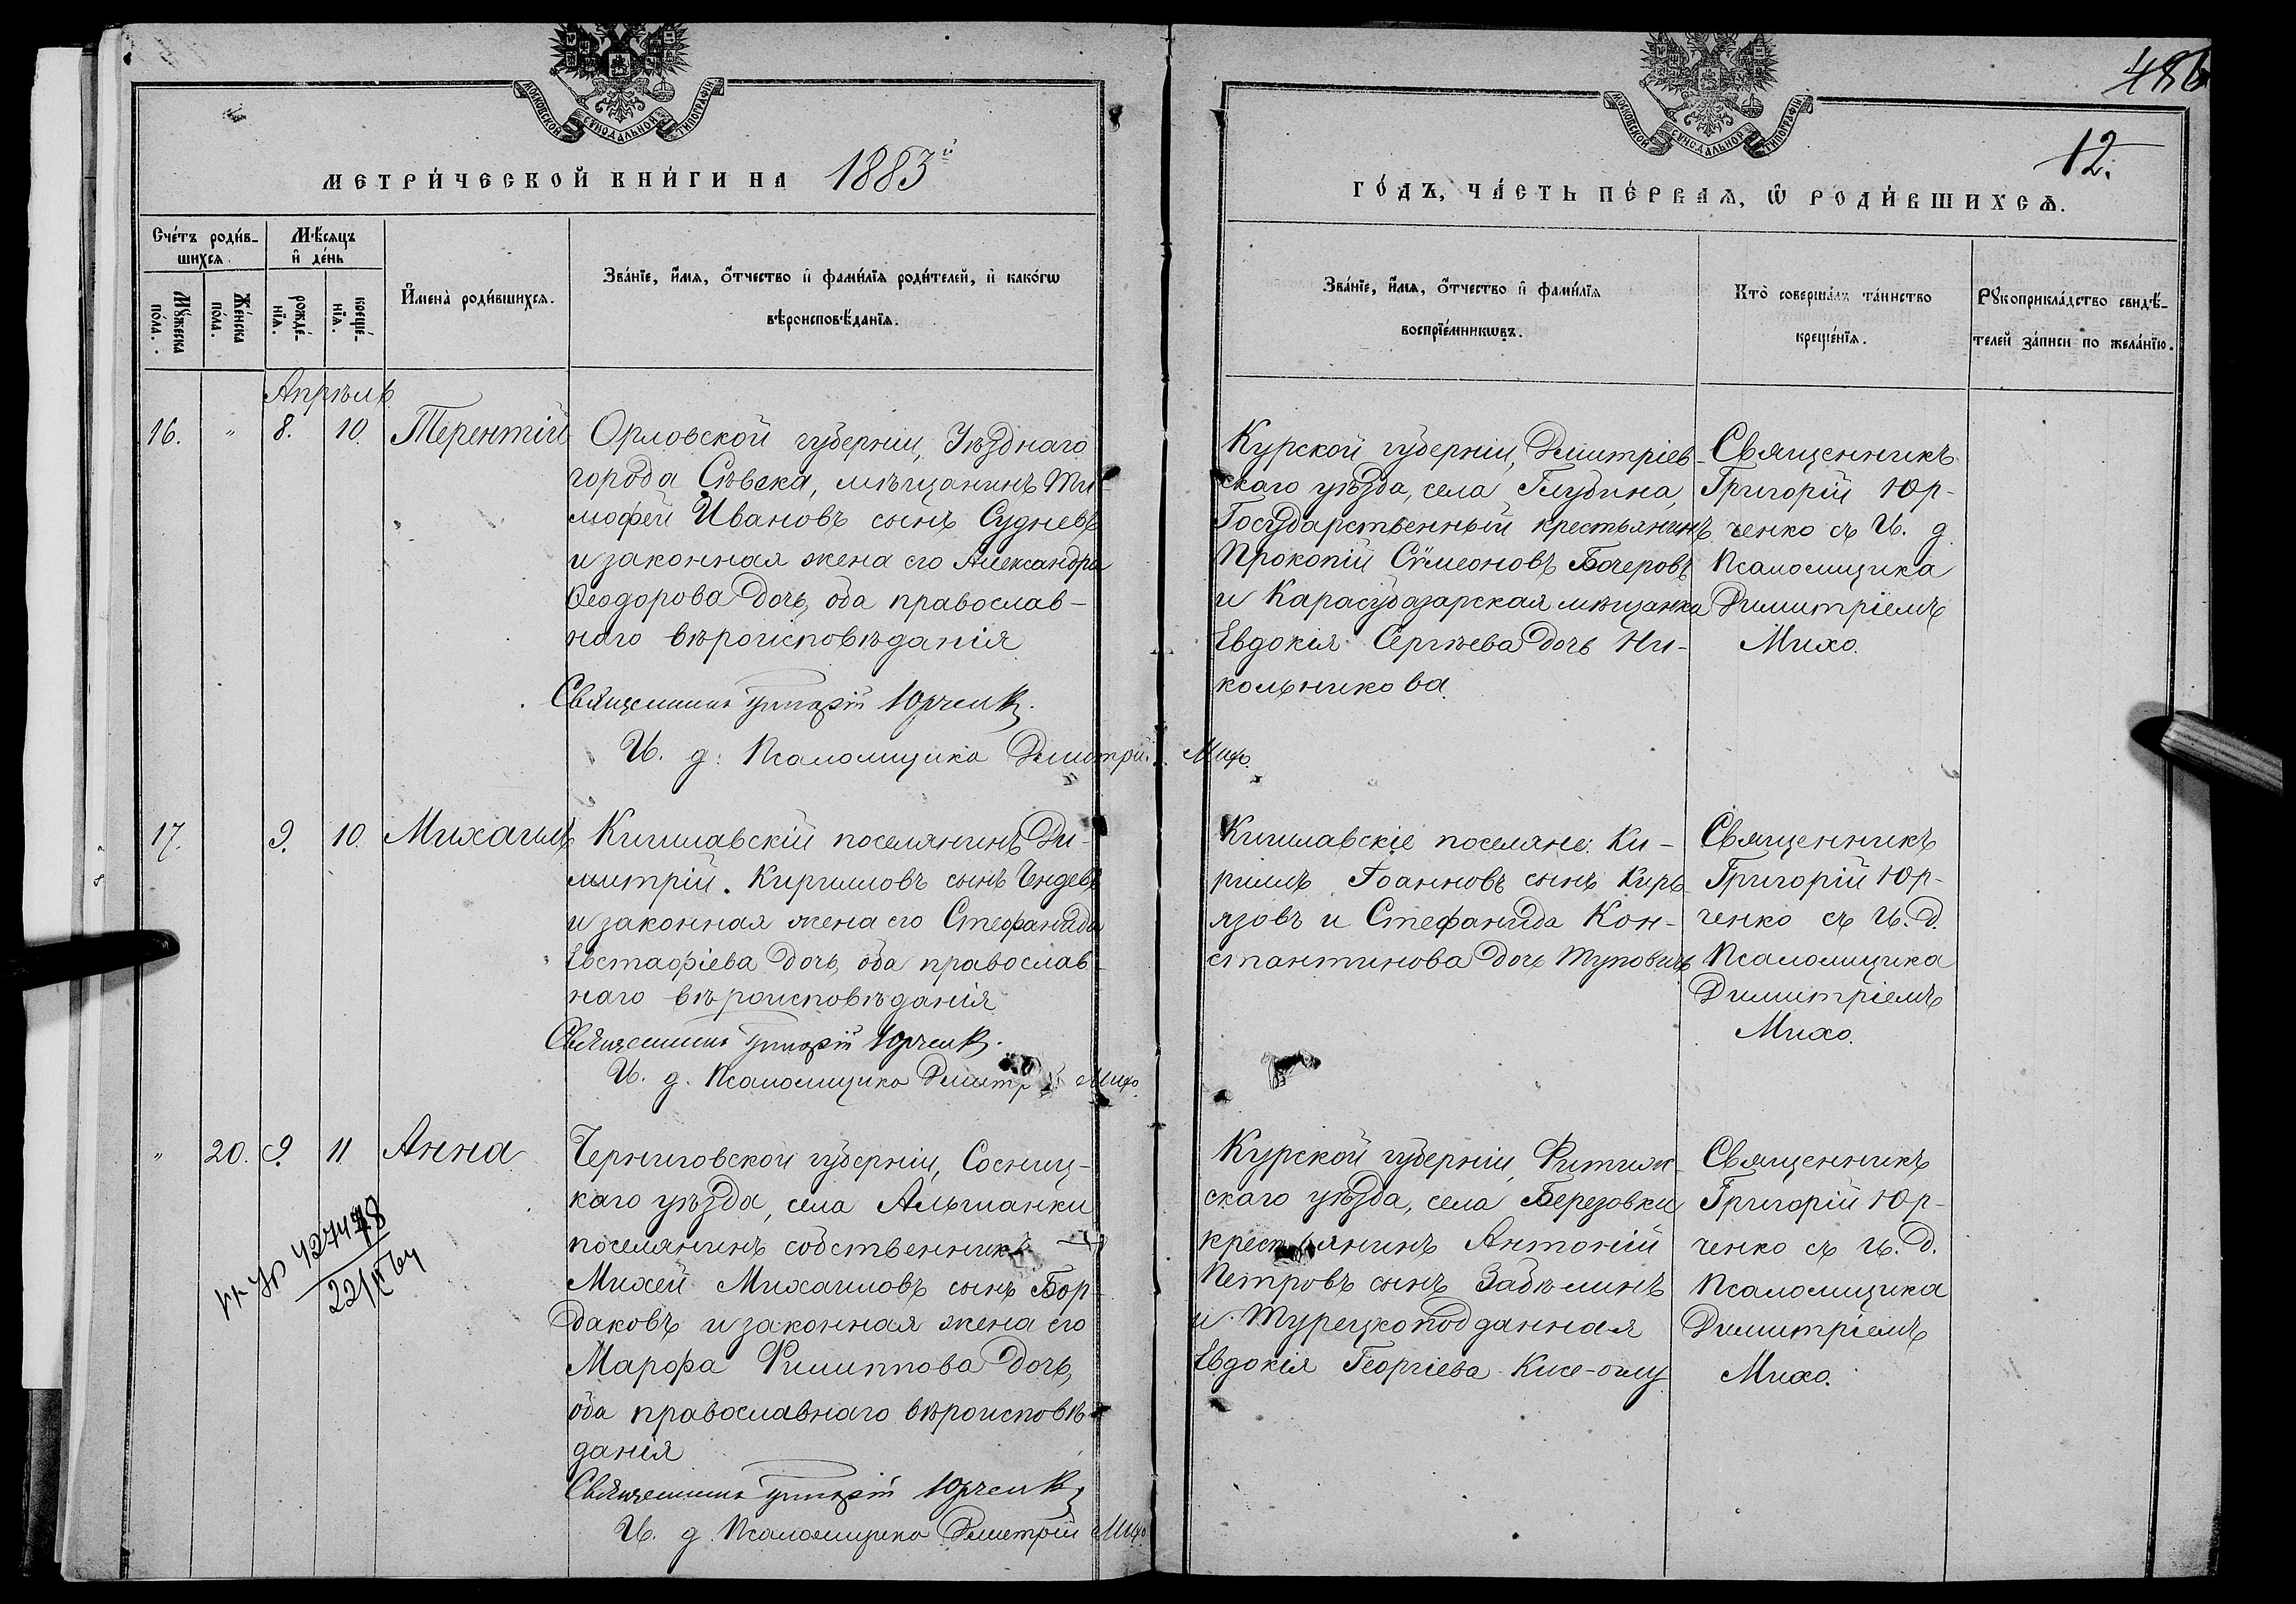 МОСКОВСКОЙ СѴНОДАЛЬНОЙ ТИПОГРАФІИ
МЕТРИ́ЧЕСКОЙ КНИ́ГИ НА 1883й
Счéтъ роди́в-
шихся.
Мꙋжеска по́ла.
Же́нска по́ла.
Мѣ́сяцъ
и҆ де́нь
рожде́-
нїя.
креще́-
нїя.
И҆мена̀ роди́вшихся.
Зва́нїе, и҆́мя, ѻ҆́тчество и҆ фами́лїя роди́телей, и҆ како́гѡ
вѣроисповѣ́данїя.
Апрѣль
16.
"
8.
10.
Терентій
Орловской губерніи, Уѣзднаго
города Сѣвска, мѣщанинъ Ти-
мофей Ивановъ сынъ Судневъ
и законная жена его Александра
Ѳеодорова дочь, оба православ-
наго вѣроисповѣданія
Священникъ Григорій Юрченко.
И. д. Псаломщика Димитрій Михо.
17.
9.
10.
Михаилъ
Кишлавскій поселянинъ Ди-
митрій Кирилловъ сынъ Чендевъ
и законная жена его Стефанида
Евстафіева дочь, оба православ-
наго вѣроисповѣданія
Священникъ Григорій Юрченко.
И. д. Псаломщика Димитрій Михо.
"
20.
9.
11
Анна
Черниговской губерніи, Сосниц-
каго уѣзда, села Альшанки
поселянинъ собственникъ
Михей Михаиловъ сынъ Бор-
даковъ и законная жена его
Марфа Филиппова дочь,
оба православнаго вѣроисповѣ-
данія
Священникъ Григорій Юрченко
И. д. Псаломщика Димитрій Михо.
22/II 64
486
12.
МОСКОВСКОЙ СѴНОДАЛЬНОЙ ТИПОГРАФІИ
ГО́ДЪ, ЧА́СТЬ ПЕ́РВАЯ, Ѡ҆ РОДИ́ВШИХСЯ.
Зва́нїе, и҆́мя, ѻ҆́тчество и҆ фами́лїя
воспрїе́мникѡвъ.
Кто̀ соверша́лъ та́инство
креще́нїя.
Рꙋкоприкла́дство свидѣ́-
телей за́писи по жела́нїю.
Курской губерніи, Димитріев-
скаго уѣзда, села Глубина,
Государственный крестьянинъ
Прокопій Сѵмеоновъ Бочеровъ
и Карасубазарская мѣщанка
Евдокія Сергѣева дочь Ни-
кольникова.
Священникъ
Григорій Юр-
ченко съ И. д.
Псаломщика
Димитріемъ
Михо.
Кишлавскіе поселяне: Ки-
риллъ Іоанновъ сынъ Кирь-
язовъ и Стефанида Кон-
стантинова дочь Туповичъ
Священникъ
Григорій Юр-
ченко съ И. д.
Псаломщика
Димитріемъ
Михо.
Курской губерніи,
скаго уѣзда, села Березовки
крестьянинъ Антоній
Петровъ сынъ Забѣлинъ
и Турецкоподданная
Евдокія Георгіева Кисе-оглу
Священникъ
Григорій Юр-
ченко съ И. д.
Псаломщика
Димитріемъ
Михо.